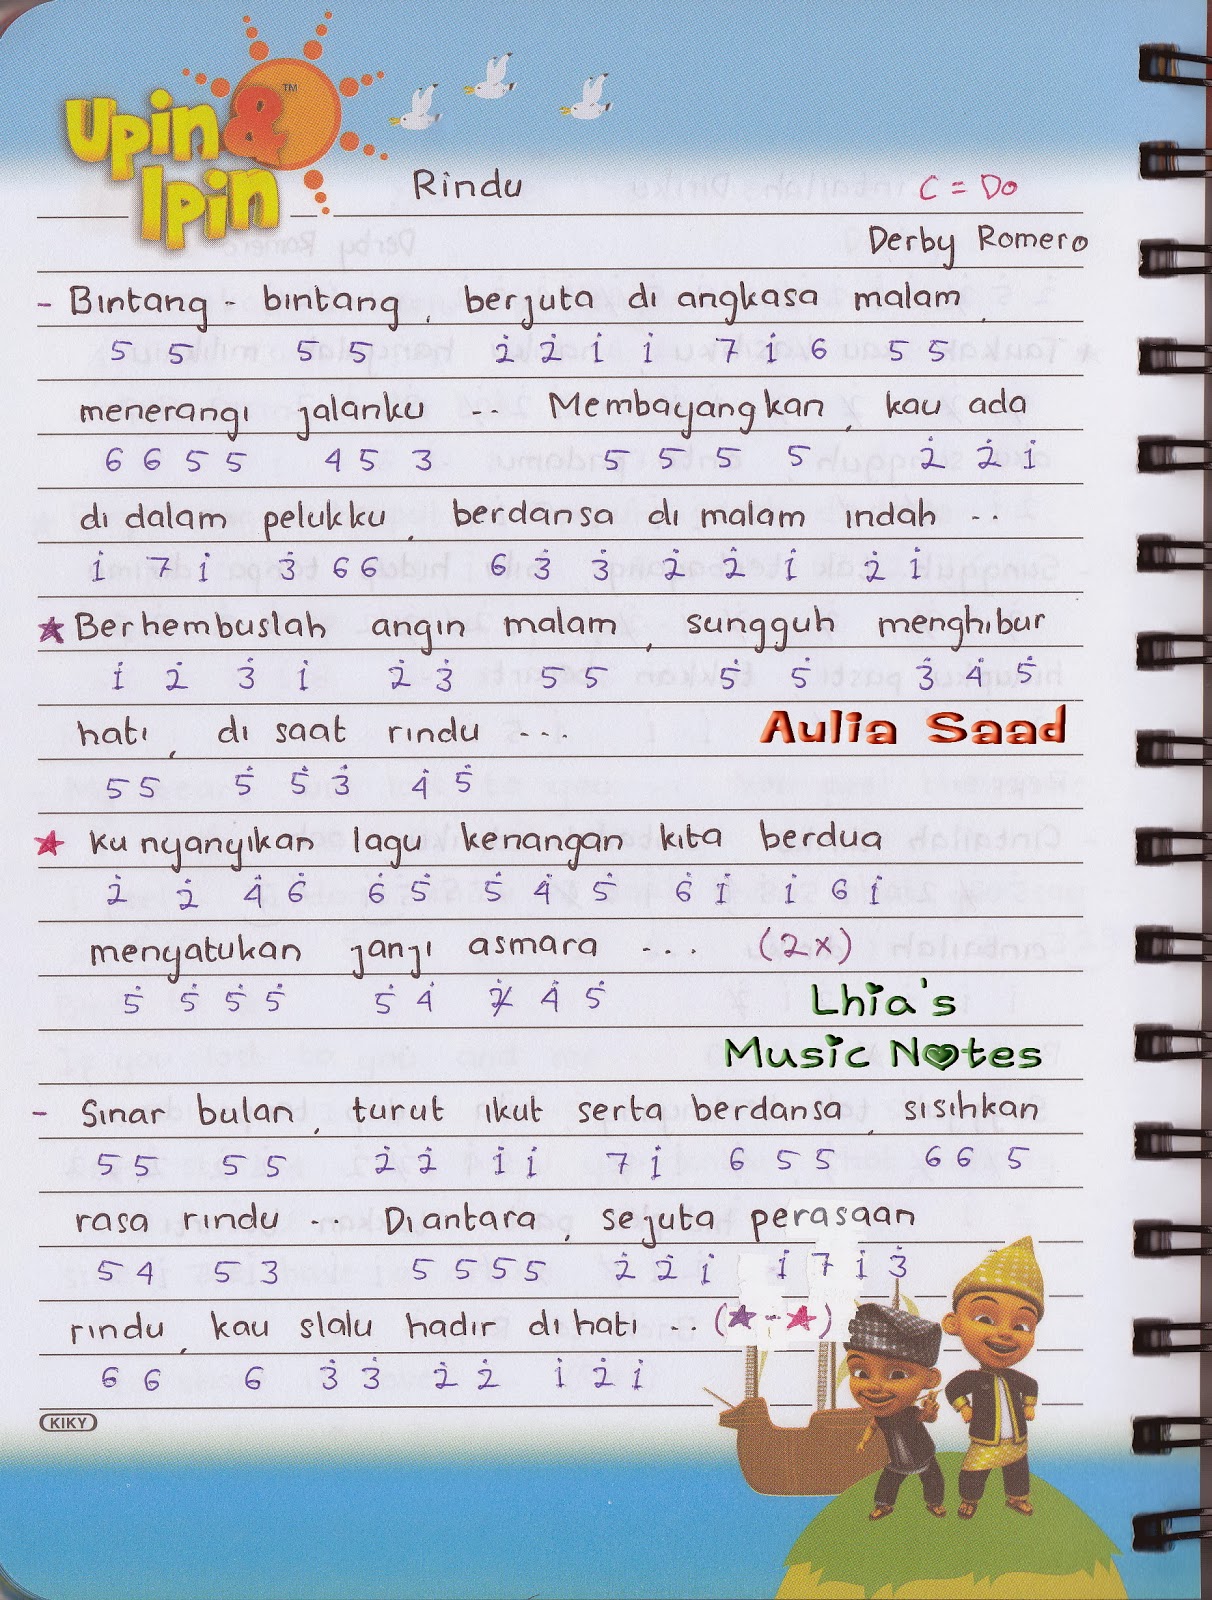 Upin &™
Ipin
Rindu C = Do
Derby Romero
- Bintang - bintang, berjuta di angkasa malam,
5 5 5 5 2̇ 2̇ 1̇ 1̇ 7 1̇ 6 5 5
menerangi jalanku -- Membayangkan, kau ada
6 6 5 5 4 5 3 5 5 5 5 2̇ 2̇ 1̇
di dalam pelukku, berdansa di malam indah --
1̇ 7 1̇ 3̇ 6 6 6 3̇ 3̇ 2̇ 2̇ 1̇ 2̇ 1̇
★ Berhembuslah angin malam, sungguh menghibur
1̇ 2̇ 3̇ 1̇ 2̇ 3̇ 5 5 5̇ 5̇ 3̇ 4̇ 5̇
hati, di saat rindu ---
Aulia Saad
5 5 5̇ 5̇ 3̇ 4̇ 5̇
★ Ku nyanyikan lagu kenangan kita berdua
2̇ 2̇ 4̇ 6̇ 6̇ 5̇ 5̇ 4̇ 5̇ 6 1̇ 1̇ 6 1̇
menyatukan janji asmara ... (2x)
5̇ 5̇ 5̇ 5̇ 5̇ 4̇ 4̇ 5̇
Lhia's
Music Notes
- Sinar bulan, turut ikut serta berdansa, sisihkan
5 5 5 5 2̇ 2̇ 1̇ 1̇ 7 1̇ 6 5 5 6 6 5
rasa rindu -- Diantara, sejuta perasaan
5 4 5 3 5 5 5 5 2̇ 2̇ 1̇ 1̇ 7 1̇ 3̇
rindu, kau slalu hadir di hati -- (★-★)
6 6 6 3̇ 3̇ 2̇ 2̇ 1̇ 2̇ 1̇
KIKY